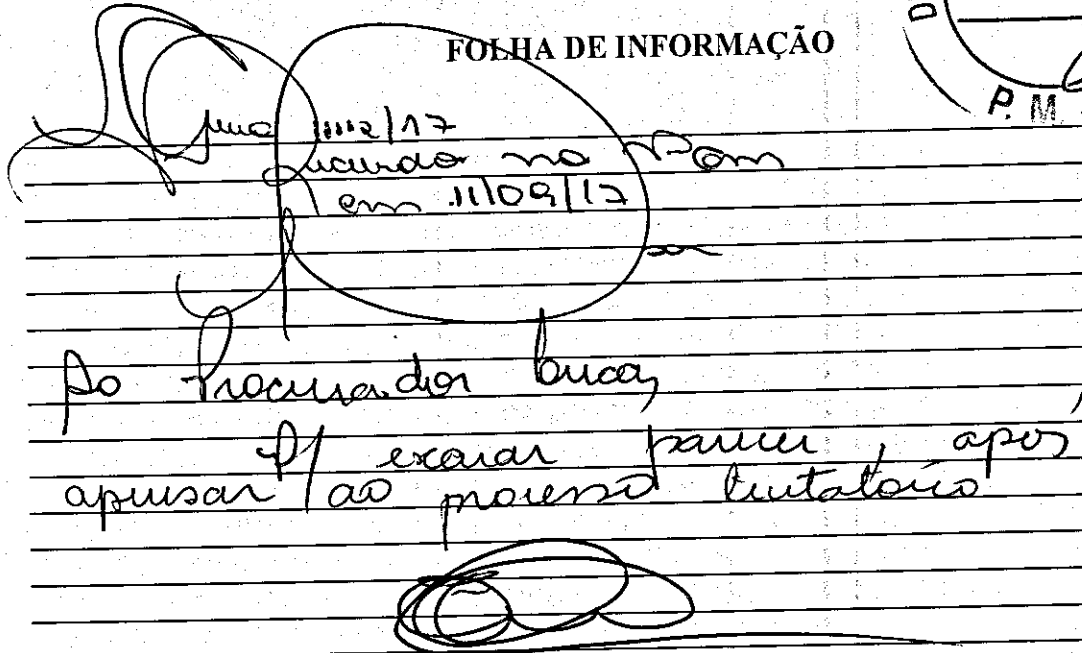 FOLHA DE INFORMAÇÃO
D
P. M
/17
no
em 11/09/17
Ao Procurador Lucas,
P/ exarar parecer, após
apensar ao processo licitatório